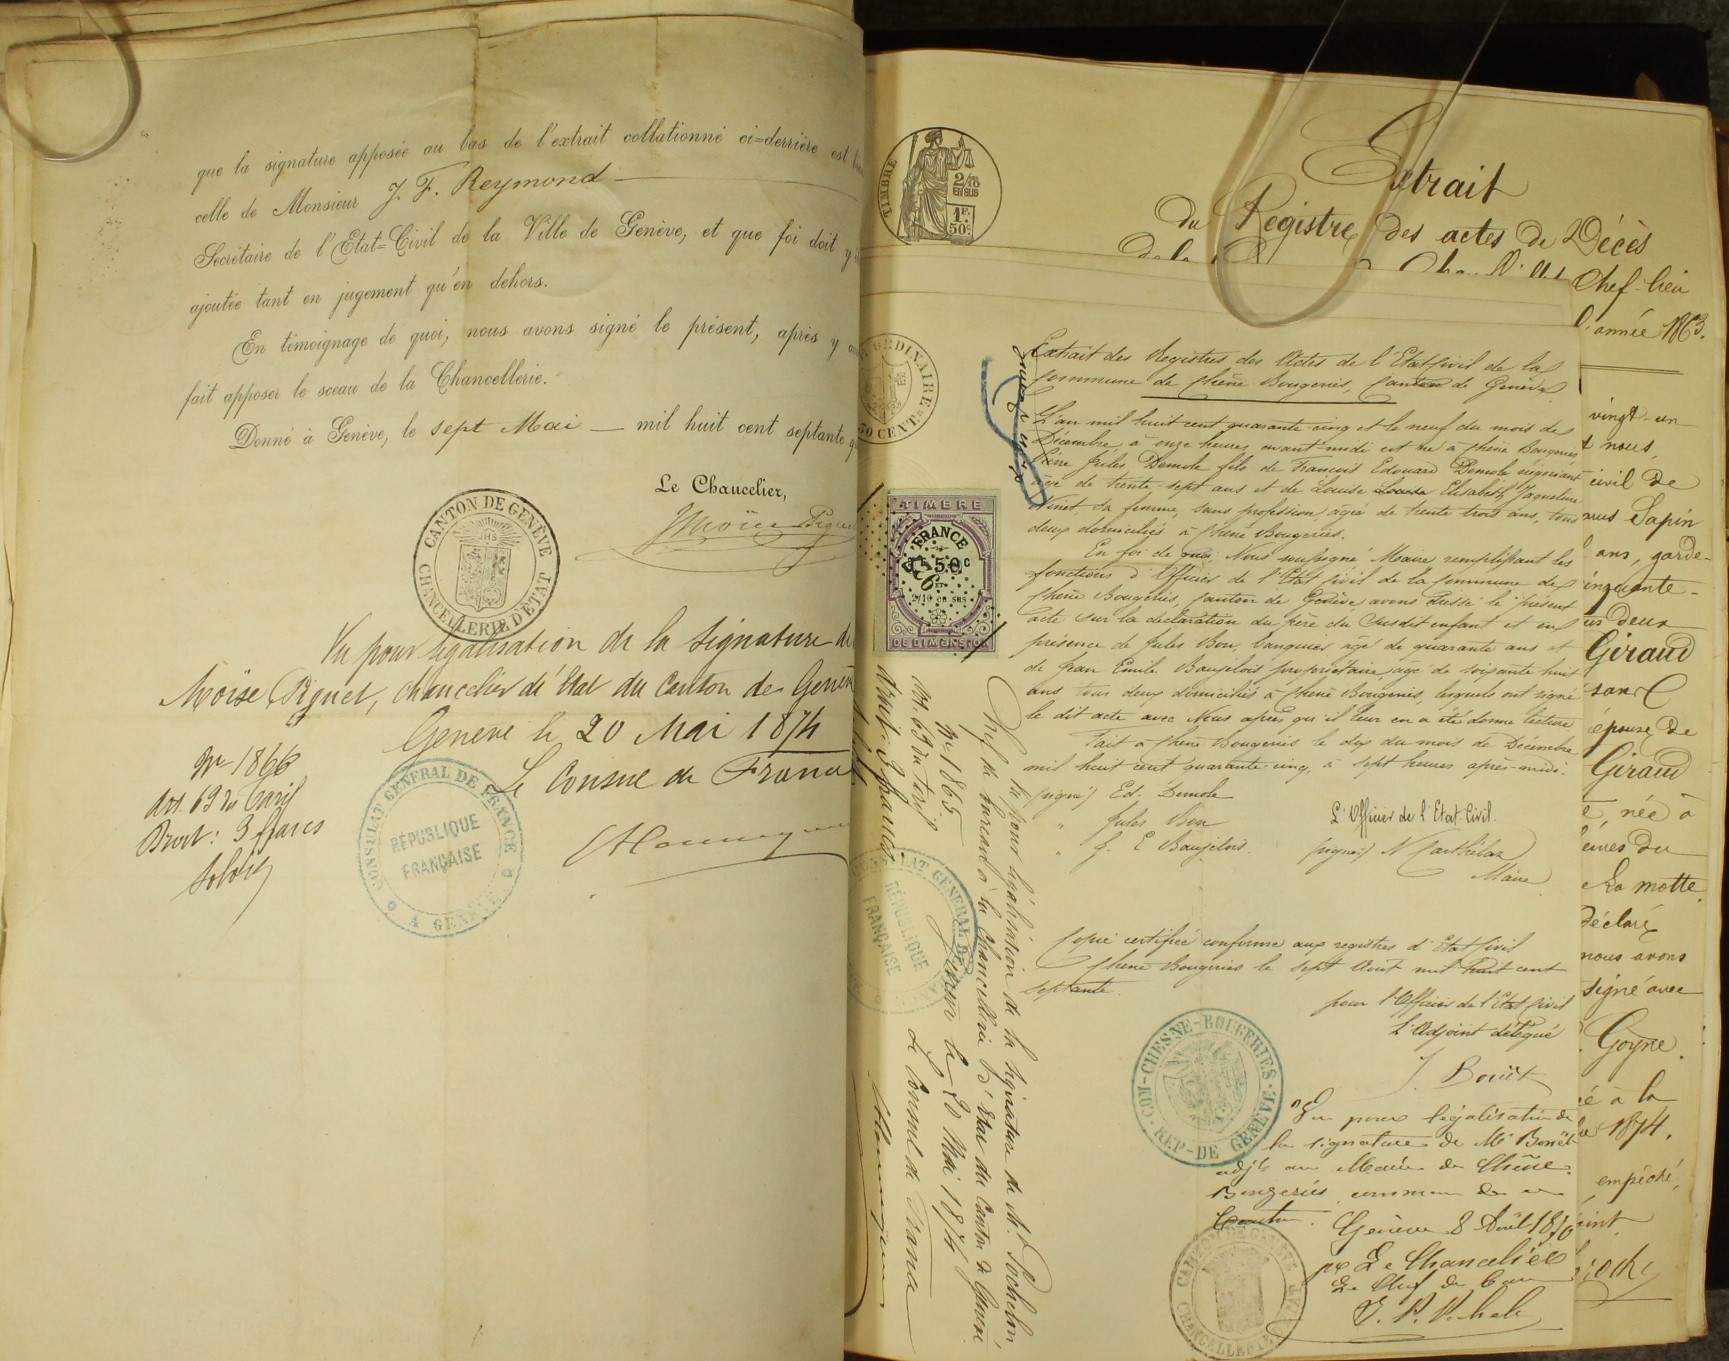 que la signature apposée au bas de l'extrait collationné ci=derrière est
celle de Monsieur J. F. Reymond
Secrétaire de l'Etat=Civil de la Ville de Genève, et que foi doit y
ajoutée tant en jugement qu'en dehors.
En témoignage de quoi, nous avons signé le présent, après y
fait apposer le sceau de la Chancellerie.
Donné à Genève, le sept Mai — mil huit cent septante
Le Chancelier,
CANTON DE GENÈVE
CHANCELLERIE D'ETAT
Vu pour légalisation de la signature de
Moïse Piguet, chancelier d'Etat du Canton de Genève
Genève le 20 Mai 1874
Le Consul de France
No 1866
Art. 63 du Tarif
Droit: 3 francs
CONSULAT GÉNÉRAL DE FRANCE
RÉPUBLIQUE
FRANÇAISE
A GENÈVE
TIMBRE
2/10
EN SUS
1F.
50c.
Extrait
du Registre des actes de Décès
de la
Chef-lieu
l'année 1863.
ORDINAIRE
50 CENT.
TIMBRE
FRANCE
1F 50c
2/10 EN SUS
DE DIMENSION
Extrait des Registres des Actes de l'Etat Civil de la
Commune de Chêne Bougeries, Canton de Genève
L'an mil huit cent quarante cinq et le neuf du mois de
Décembre, à onze heures avant-midi est né à Chêne Bougeries
Jules Demole fils de François Edouard Demole négociant
âgé de trente-sept ans et de Louise Louise Elisabeth Jaqueline
Ninet sa femme, sans profession âgée de trente trois ans, tous
deux domiciliés à Chêne Bougeries.
En foi de quoi Nous soussigné Maire remplissant les
fonctions d'Officier de l'Etat Civil de la Commune de
Chêne Bougeries, Canton de Genève avons dressé le présent
acte sur la déclaration du père du susdit enfant et en
présence de Jules Bon, banquier âgé de quarante ans et
de Jean Emile Baujelois propriétaire, âgé de soixante huit
ans tous deux domiciliés à Chêne Bougeries, lesquels ont signé
le dit acte avec Nous après qu'il leur en a été donné lecture
Fait à Chêne Bougeries le dix du mois de Décembre
mil huit cent quarante-cinq, à sept heures après-midi.
(signé) Ed. Demole
" Jules Bon
L'Officier de l'Etat Civil.
" J. E Baujelois.
(signé)
Maire
Copie certifiée conforme aux registres d'Etat Civil
Chêne Bougeries le sept Août mil huit cent
septante.
pour l'Officier de l'Etat Civil
L'Adjoint délégué
COM-CHESNE-BOUGERIES
REP-DE GENÈVE
Vu pour légalisation de
la signature de Mr
adjt au Maire de Chêne
Bougeries, commune de ce
Canton. Genève 8 Août 1870
pr Le Chancelier
CANTON DE GENÈVE
CHANCELLERIE D'ETAT
Vu pour légalisation de la signature de Mr. Pochelon,
Chef de bureau à la Chancellerie d'Etat du Canton de Genève
Genève le 20 Mai 1874
Le Consul de France
No 1865
Art. 63 du Tarif
Droit: 3 francs
CONSULAT GÉNÉRAL DE
RÉPUBLIQUE
FRANÇAISE
vingt-un
nous,
civil de
Sapin
ans, garde-
cinquante-
deux
Giraud
sans
épouse de
Giraud
née à
La motte
Déclaré
nous avons
signé avec
Goyne.
à la
1874.
empêché,